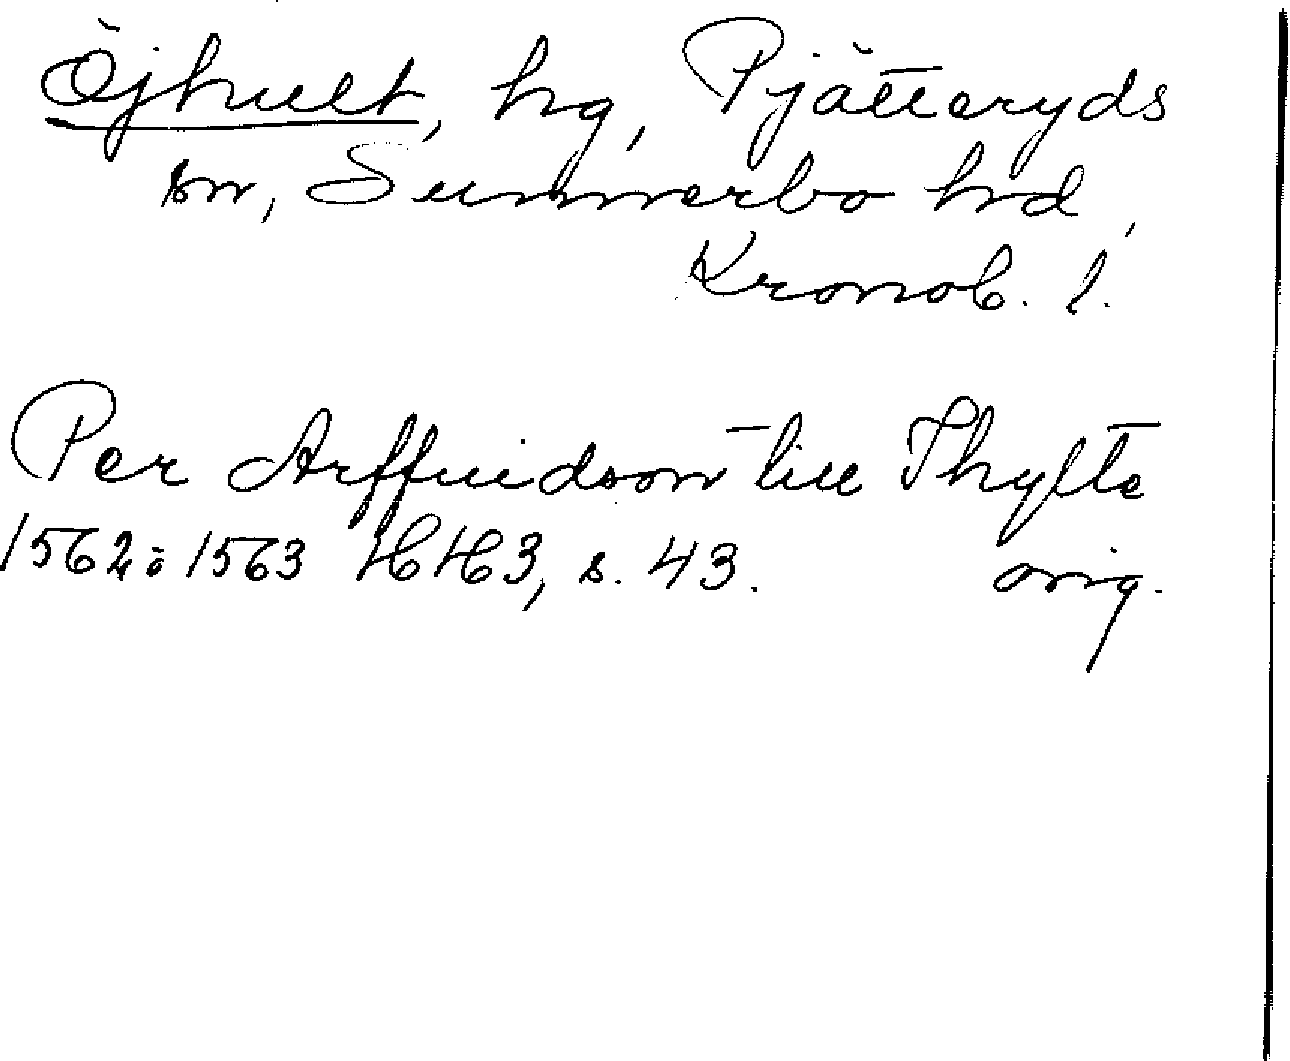 Öjhult, hg, Pjätteryds
sn, Sunnerbo hd,
Kronob. l.
Per Arffuidson till Thylte
1562: 1563 HH3, s. 43. orig.